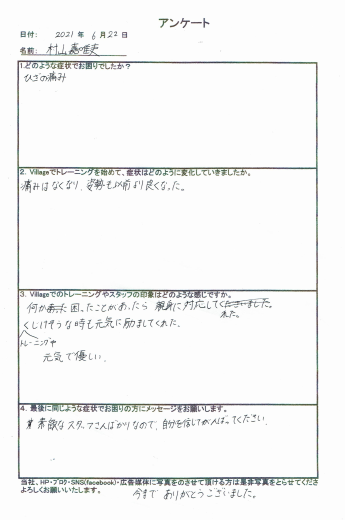 アンケート
日付: 2021 年 6 月 22 日
名前: 村山 嘉唯吏
1.どのような症状でお困りでしたか?
ひざの痛み
2. Villageでトレーニングを始めて、症状はどのように変化していきましたか。
痛みはなくなり、姿勢も以前より良くなった。
3. Villageでのトレーニングやスタッフの印象はどのような感じですか。
何かあった 困ったことがあったら 親身に対応してくださいました。
れた。
くじけそうな時も元気に励ましてくれた.
トレーニングや
元気で優しい.
4. 最後に同じような症状でお困りの方にメッセージをお願いします。
素敵なスタッフさんばかりなので、自分を信じてがんばってください.
当社、HP・ブログ・SNS(facebook)・広告媒体に写真をのさせて頂ける方は是非写真をとらせてくださ
よろしくお願いいたします。
今まで ありがとうございました。